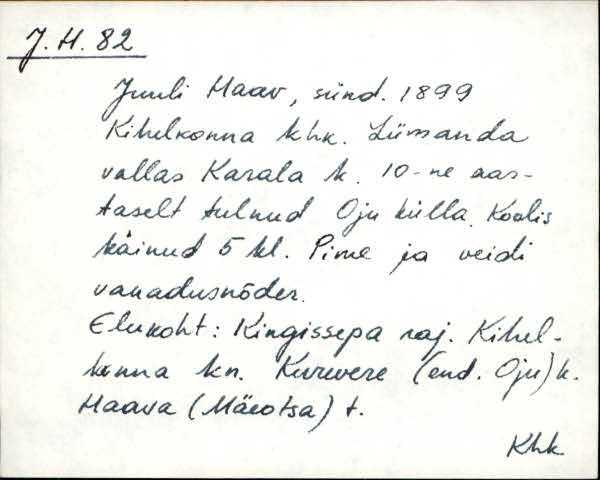 J. H. 82
Juuli Haav, sünd. 1899
Kihelkonna khk. Lümanda
vallas Karala k. 10-ne aas-
taselt tulnud Oju külla. Koolis
käinud 5 kl. Pime ja veidi
vanadusnõder.
Elukoht: Kingissepa raj. Kihel-
konna kn. Kurevere (end. Oju) k.
Haava (Mäeotsa) t.
Khk